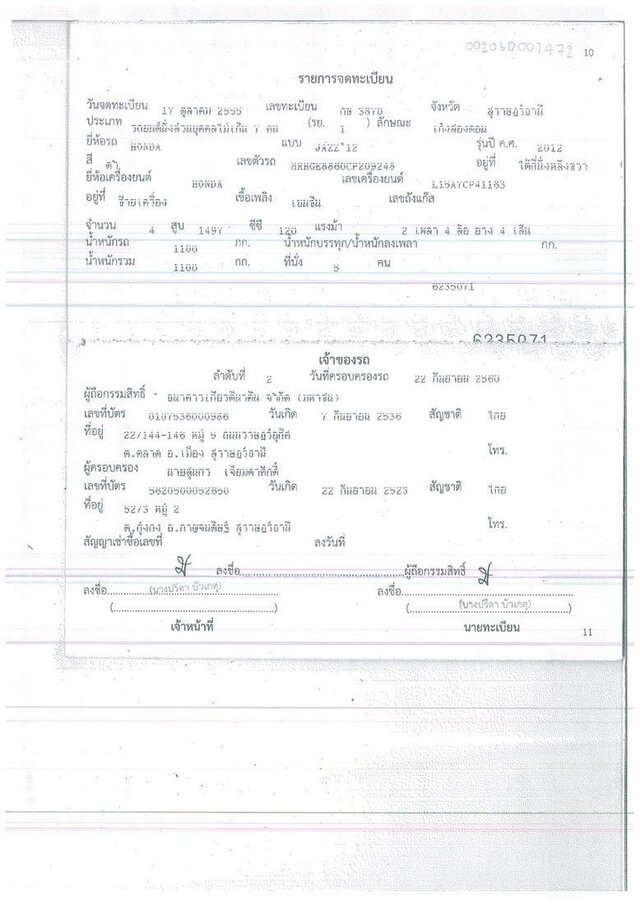 002060001472 10
รายการจดทะเบียน
วันจดทะเบียน 17 ตุลาคม 2555 เลขทะเบียน กษ 3870 จังหวัด สุราษฎร์ธานี
ประเภท รถยนต์นั่งส่วนบุคคลไม่เกิน 7 คน (รย. 1 ) ลักษณะ เก๋งสองตอน
ยี่ห้อรถ HONDA แบบ JAZZ'12 รุ่นปี ค.ศ. 2012
สี ดำ เลขตัวรถ MRHGE8860CP209248 อยู่ที่ ใต้ที่นั่งหลังขวา
ยี่ห้อเครื่องยนต์ HONDA เลขเครื่องยนต์ L15A7CP41163
อยู่ที่ ซ้ายเครื่อง เชื้อเพลิง เบนซิน เลขถังแก๊ส
จำนวน 4 สูบ 1497 ซีซี 120 แรงม้า 2 เพลา 4 ล้อ ยาง 4 เส้น
น้ำหนักรถ 1100 กก. น้ำหนักบรรทุก/น้ำหนักลงเพลา กก.
น้ำหนักรวม 1100 กก. ที่นั่ง 5 คน
6235071
6235071
เจ้าของรถ
ลำดับที่ 2 วันที่ครอบครองรถ 22 กันยายน 2560
ผู้ถือกรรมสิทธิ์ ธนาคารเกียรตินาคิน จำกัด (มหาชน)
เลขที่บัตร 0107536000986 วันเกิด 7 กันยายน 2536 สัญชาติ ไทย
ที่อยู่ 22/144-146 หมู่ 5 ถนนราษฎร์อุทิศ
ต.ตลาด อ.เมือง สุราษฎร์ธานี โทร.
ผู้ครอบครอง เจียมตาศักดิ์
เลขที่บัตร 5820500052650 วันเกิด 22 กันยายน 2523 สัญชาติ ไทย
ที่อยู่ 52/3 หมู่ 2
ต.กุ้งกง อ.กาญจนดิษฐ์ สุราษฎร์ธานี โทร.
สัญญาเช่าซื้อเลขที่ ลงวันที่
ลงชื่อ ผู้ถือกรรมสิทธิ์
ลงชื่อ (นางปรีดา บัวเกตุ) ลงชื่อ
( ) ( (นางปรีดา บัวเกตุ) )
เจ้าหน้าที่ นายทะเบียน 11